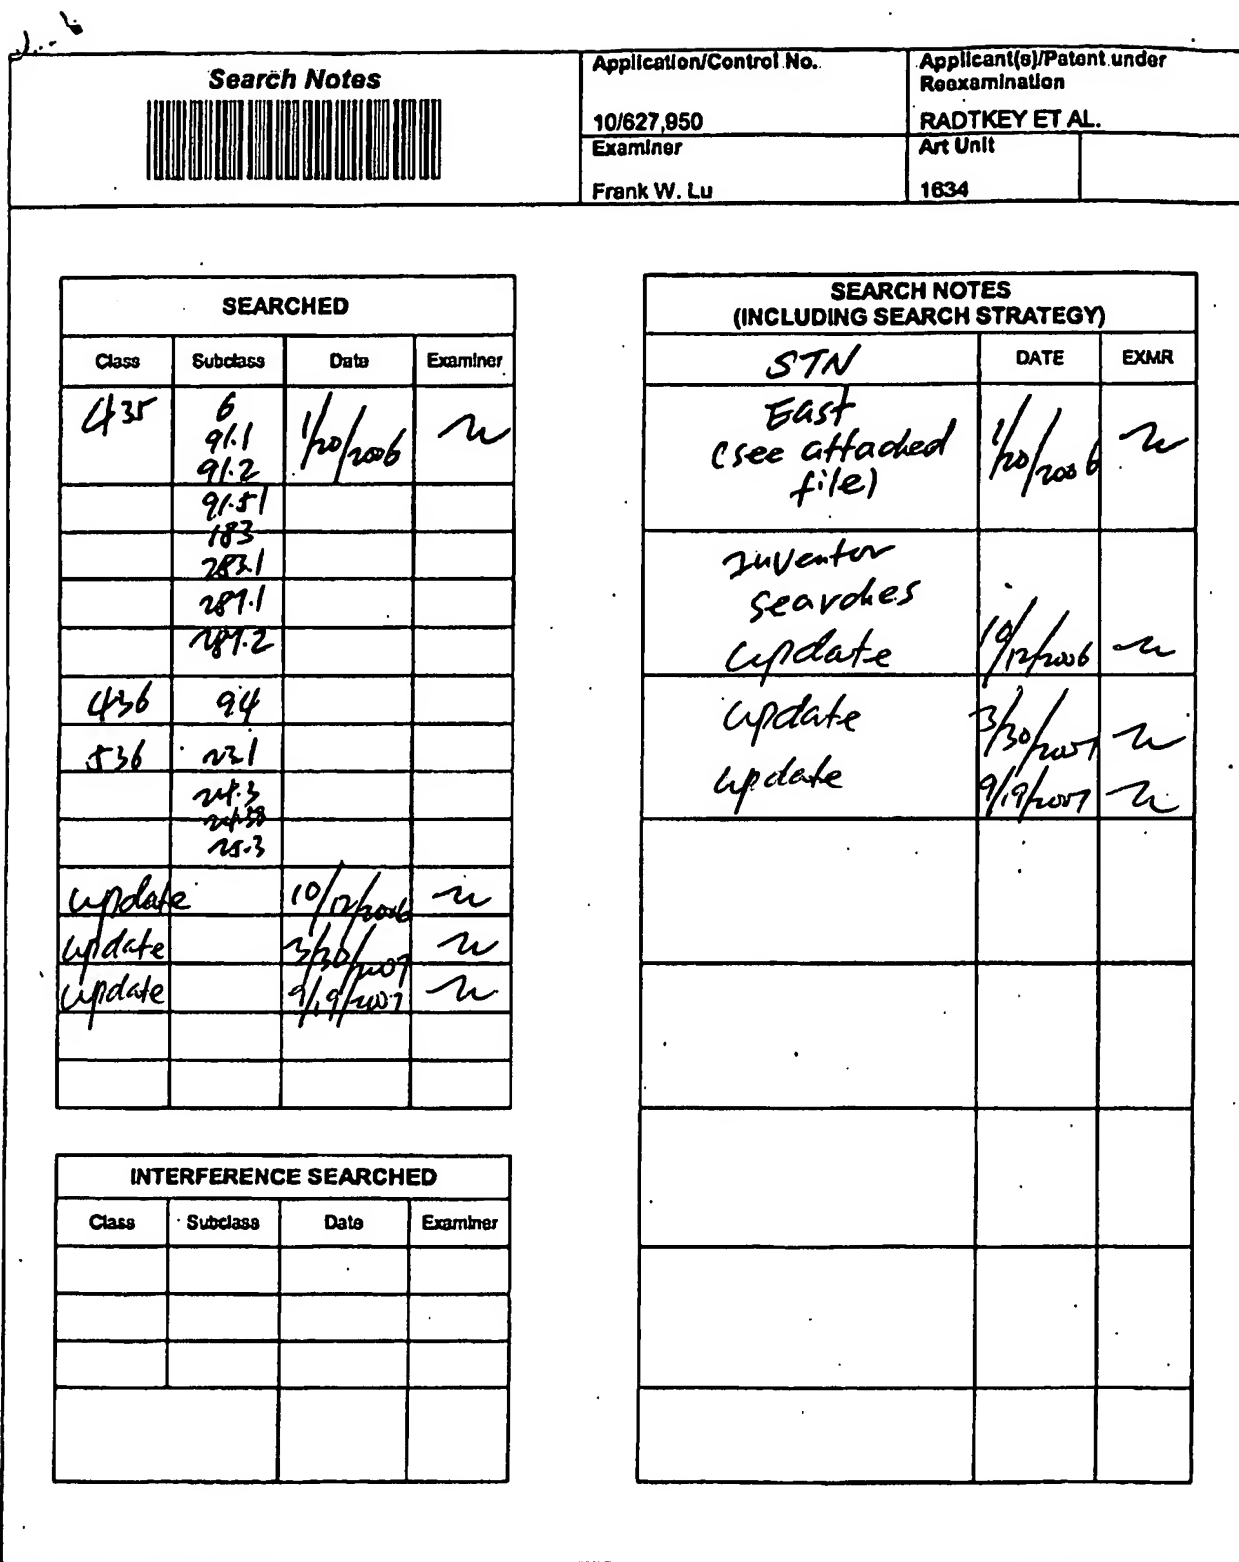 Search Notes
Application/Control No.
10/627,950
Applicant(s)/Patent under
Reexamination
RADTKEY ET AL.
Examiner
Frank W. Lu
Art Unit
1634
SEARCHED
Class Subclass Date Examiner
435 6 1/20/2006
91.1
91.2
91.51
183
283.1
287.1
287.2
436 94
536 23.1
24.3
25.3
update 10/12/2006
update 3/30/2007
update 9/19/2007
INTERFERENCE SEARCHED
Class Subclass Date Examiner
SEARCH NOTES
(INCLUDING SEARCH STRATEGY)
STN DATE EXMR
East
(see attached
file) 1/20/2006
Inventor
searches
update 10/12/2006
update 3/30/2007
update 9/19/2007